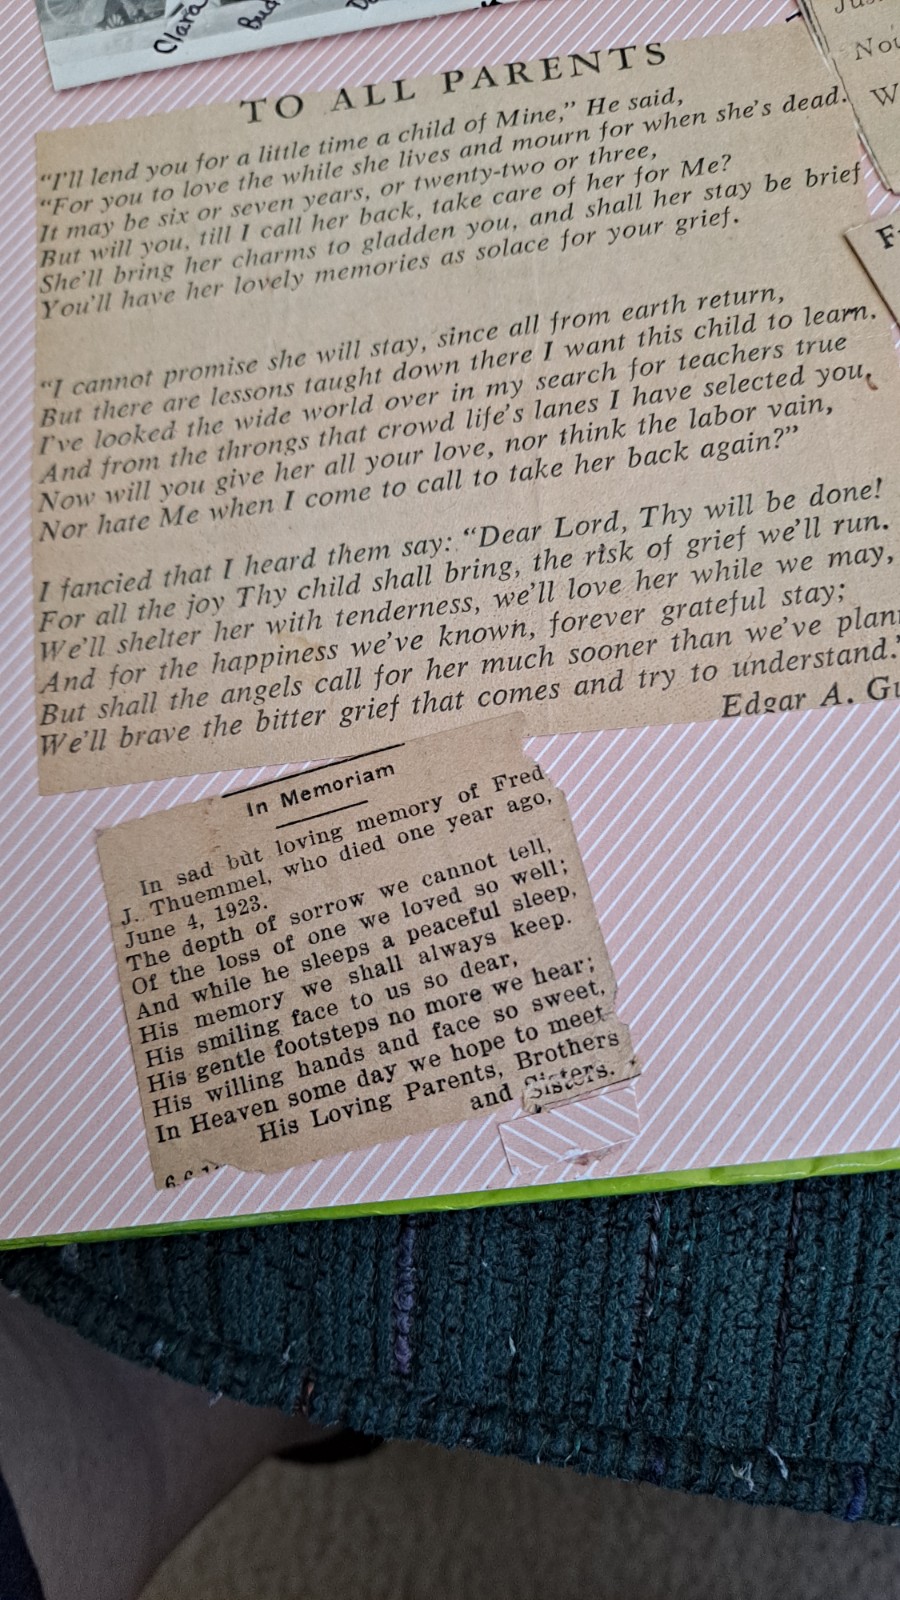 Clara
TO ALL PARENTS
"I'll lend you for a little time a child of Mine," He said,
"For you to love the while she lives and mourn for when she's dead.
It may be six or seven years, or twenty-two or three,
But will you, till I call her back, take care of her for Me?
She'll bring her charms to gladden you, and shall her stay be brief
You'll have her lovely memories as solace for your grief.
"I cannot promise she will stay, since all from earth return,
But there are lessons taught down there I want this child to learn.
I've looked the wide world over in my search for teachers true
And from the throngs that crowd life's lanes I have selected you,
Now will you give her all your love, nor think the labor vain,
Nor hate Me when I come to call to take her back again?"
I fancied that I heard them say: "Dear Lord, Thy will be done!
For all the joy Thy child shall bring, the risk of grief we'll run.
We'll shelter her with tenderness, we'll love her while we may,
And for the happiness we've known, forever grateful stay;
But shall the angels call for her much sooner than we've
We'll brave the bitter grief that comes and try to understand."
Edgar A.
In Memoriam
In sad but loving memory of Fred
J. Thuemmel, who died one year ago,
June 4, 1923.
The depth of sorrow we cannot tell,
Of the loss of one we loved so well;
And while he sleeps a peaceful sleep,
His memory we shall always keep.
His smiling face to us so dear,
His gentle footsteps no more we hear;
His willing hands and face so sweet,
In Heaven some day we hope to meet
His Loving Parents, Brothers
and Sisters.